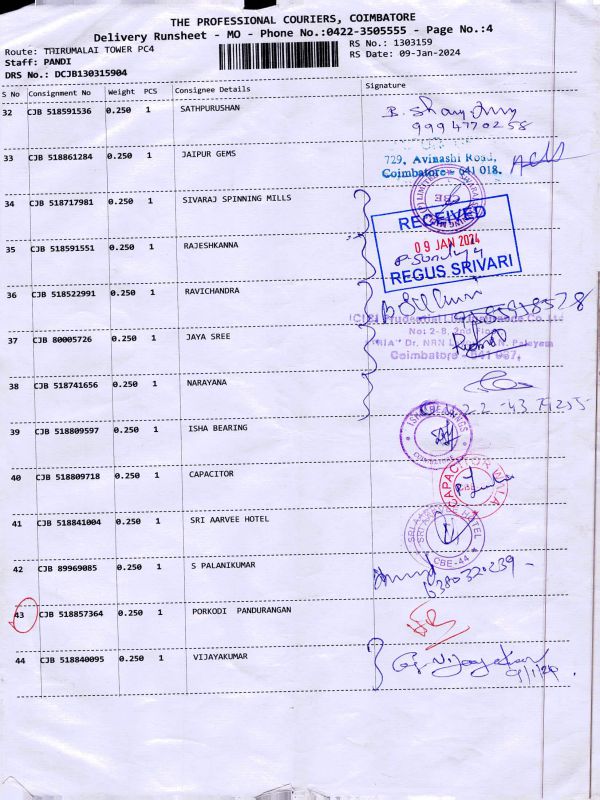 THE PROFESSIONAL COURIERS, COIMBATORE
Delivery Runsheet - MO - Phone No.:0422-3505555 - Page No.:4
Route: THIRUMALAI TOWER PC4
RS No.: 1303159
Staff: PANDI
RS Date: 09-Jan-2024
DRS No.: DCJB130315904
S No Consignment No Weight PCS Consignee Details Signature
32 CJB 518591536 0.250 1 SATHPURUSHAN
9994770258
33 CJB 518861284 0.250 1 JAIPUR GEMS
729, Avinashi Road,
Coimbatore - 641 018.
34 CJB 518717981 0.250 1 SIVARAJ SPINNING MILLS
RECEIVED
09 JAN 2024
REGUS SRIVARI
35 CJB 518591551 0.250 1 RAJESHKANNA
36 CJB 518522991 0.250 1 RAVICHANDRA
37 CJB 80005726 0.250 1 JAYA SREE
No: 2-8, 2nd Floor
Coimbatore - 641 037.
38 CJB 518741656 0.250 1 NARAYANA
39 CJB 518809597 0.250 1 ISHA BEARING
ISHA BEARINGS
40 CJB 518809718 0.250 1 CAPACITOR
CAPACITOR
41 CJB 518841004 0.250 1 SRI AARVEE HOTEL
HOTEL
CBE-44
42 CJB 89969085 0.250 1 S PALANIKUMAR
43 CJB 518857364 0.250 1 PORKODI PANDURANGAN
44 CJB 518840095 0.250 1 VIJAYAKUMAR
9/1/24